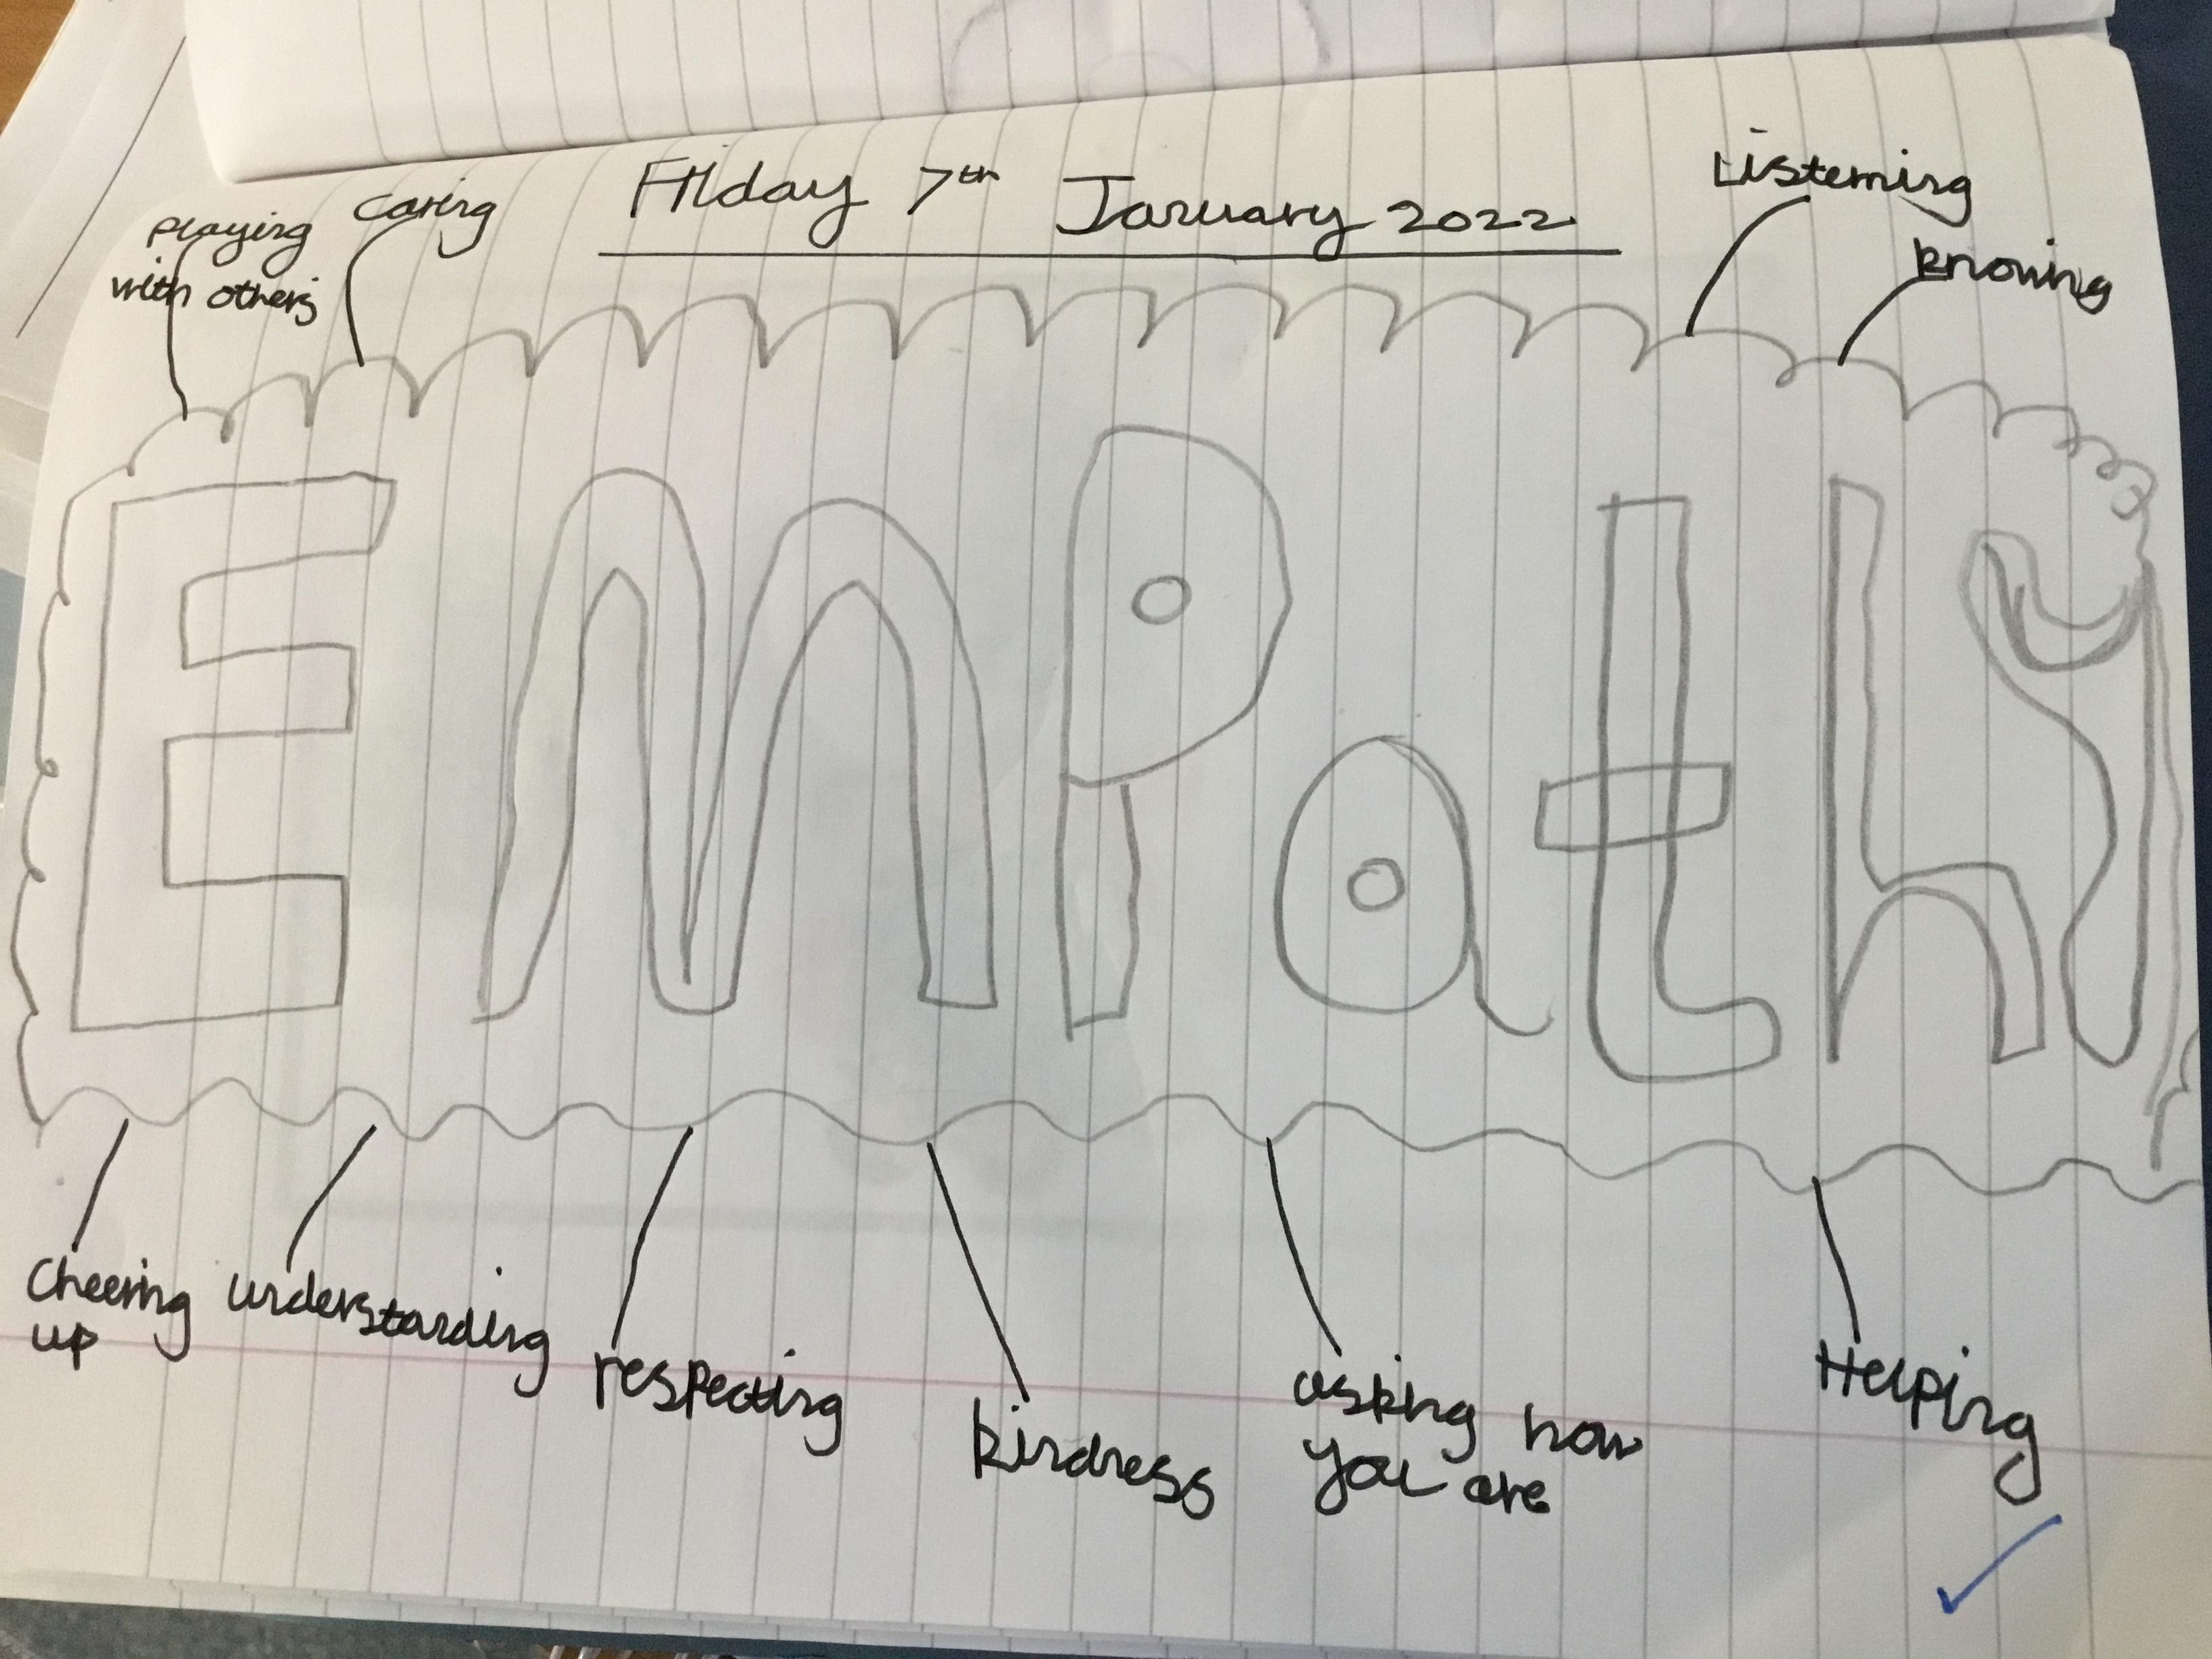 Friday 7th January 2022
playing
with others
caring
Listening
knowing
EmPathy
Cheering
up
understanding
respecting
kindness
asking how
you are
Helping